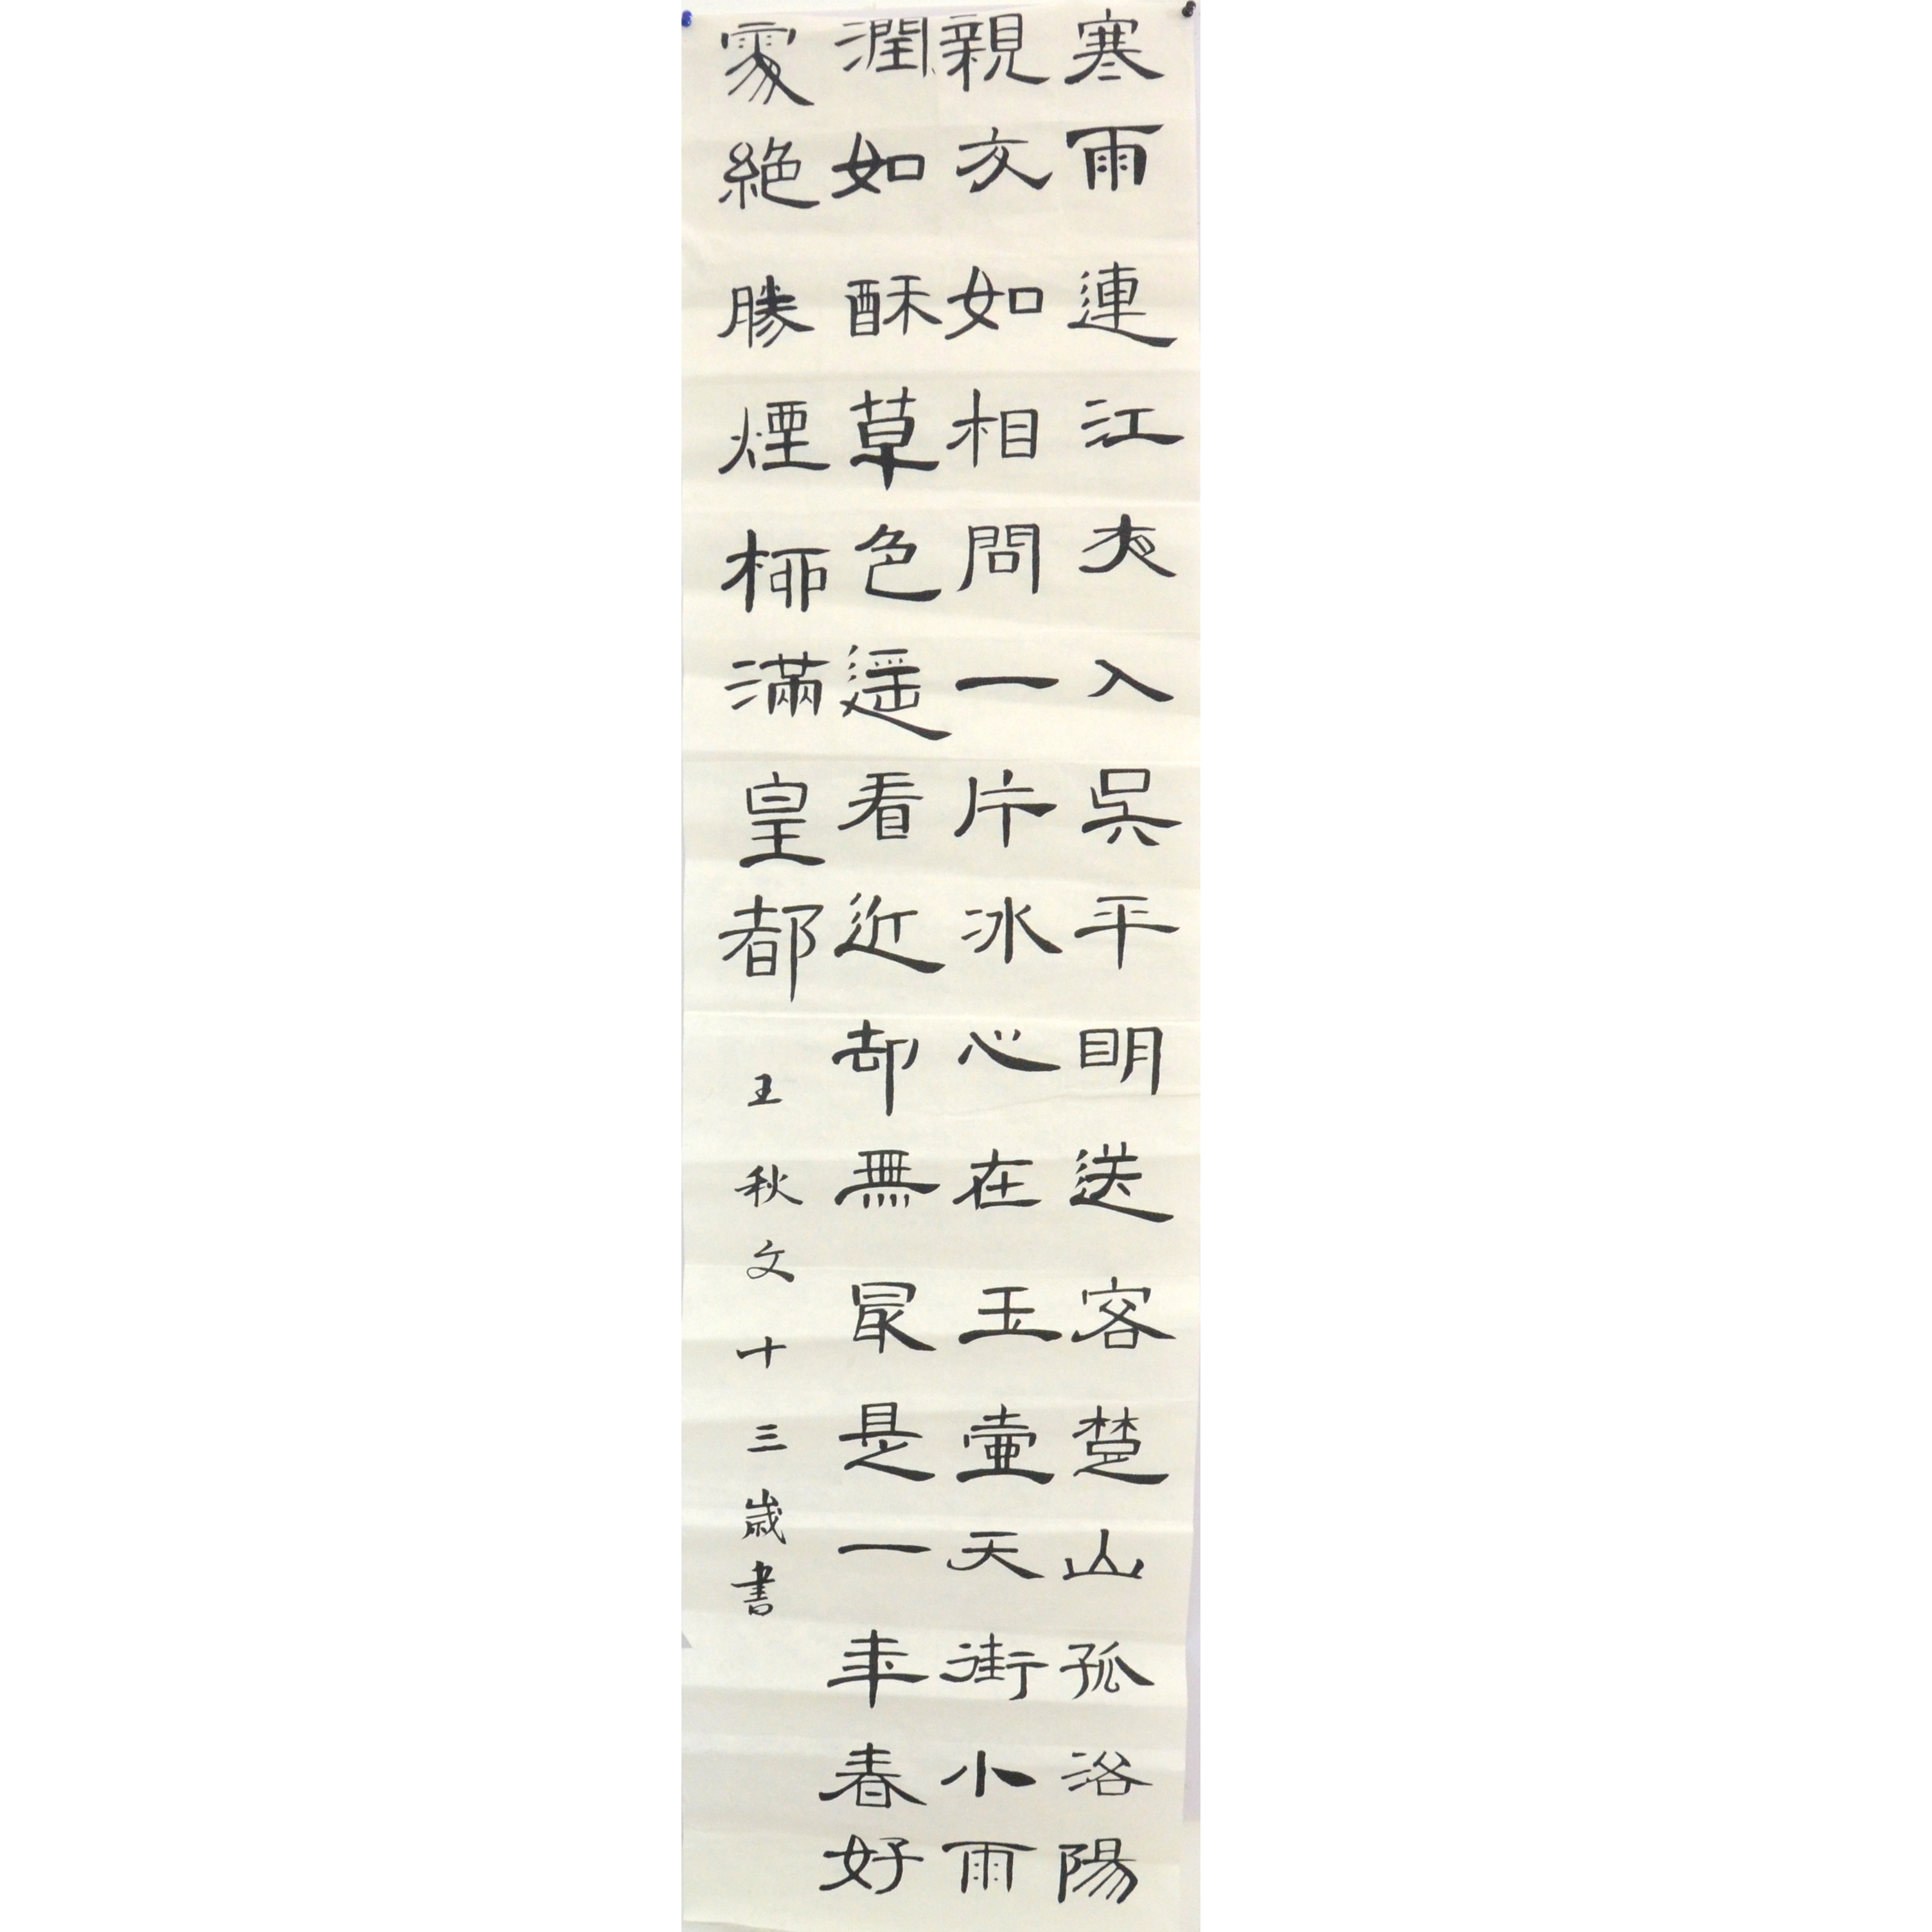 寒雨連江夜入吳平明送客楚山孤洛陽
親友如相問一片冰心在玉壺天街小雨
潤如酥草色遥看近却無最是一年春好
處絶勝煙柳滿皇都
王秋文十三歲書